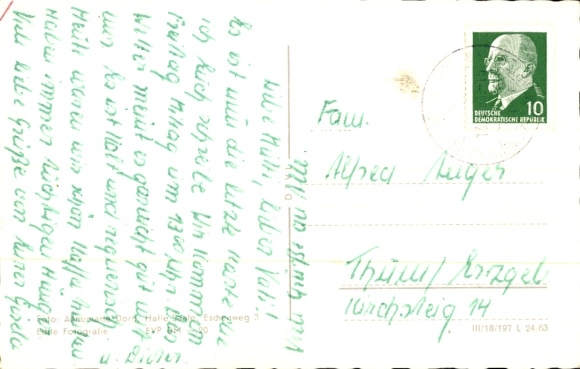 Liebe Mutti, lieber Vati!
Es ist nun die letzte Karte die
ich Euch schreibe. Wir kommen
Freitag Mittag um 13 00 Uhr. Das
Wetter meint es garnicht gut mit
uns. Es ist kalt und regnerisch.
Heute waren wir schön Kaffee trinken
Haben immer tüchtigen Hunger
Viele liebe Grüße von Eurer Gisela
u. Dieter
Fam.
Alfred Auger
Thum/Erzgeb.
Kirchsteig 14
DEUTSCHE
DEMOKRATISCHE REPUBLIK
10
Foto: Annemarie Dorn, Halle/Saale, Eschenweg 3
Echte Fotografie EVP DM 20
III/18/197 L 24 63